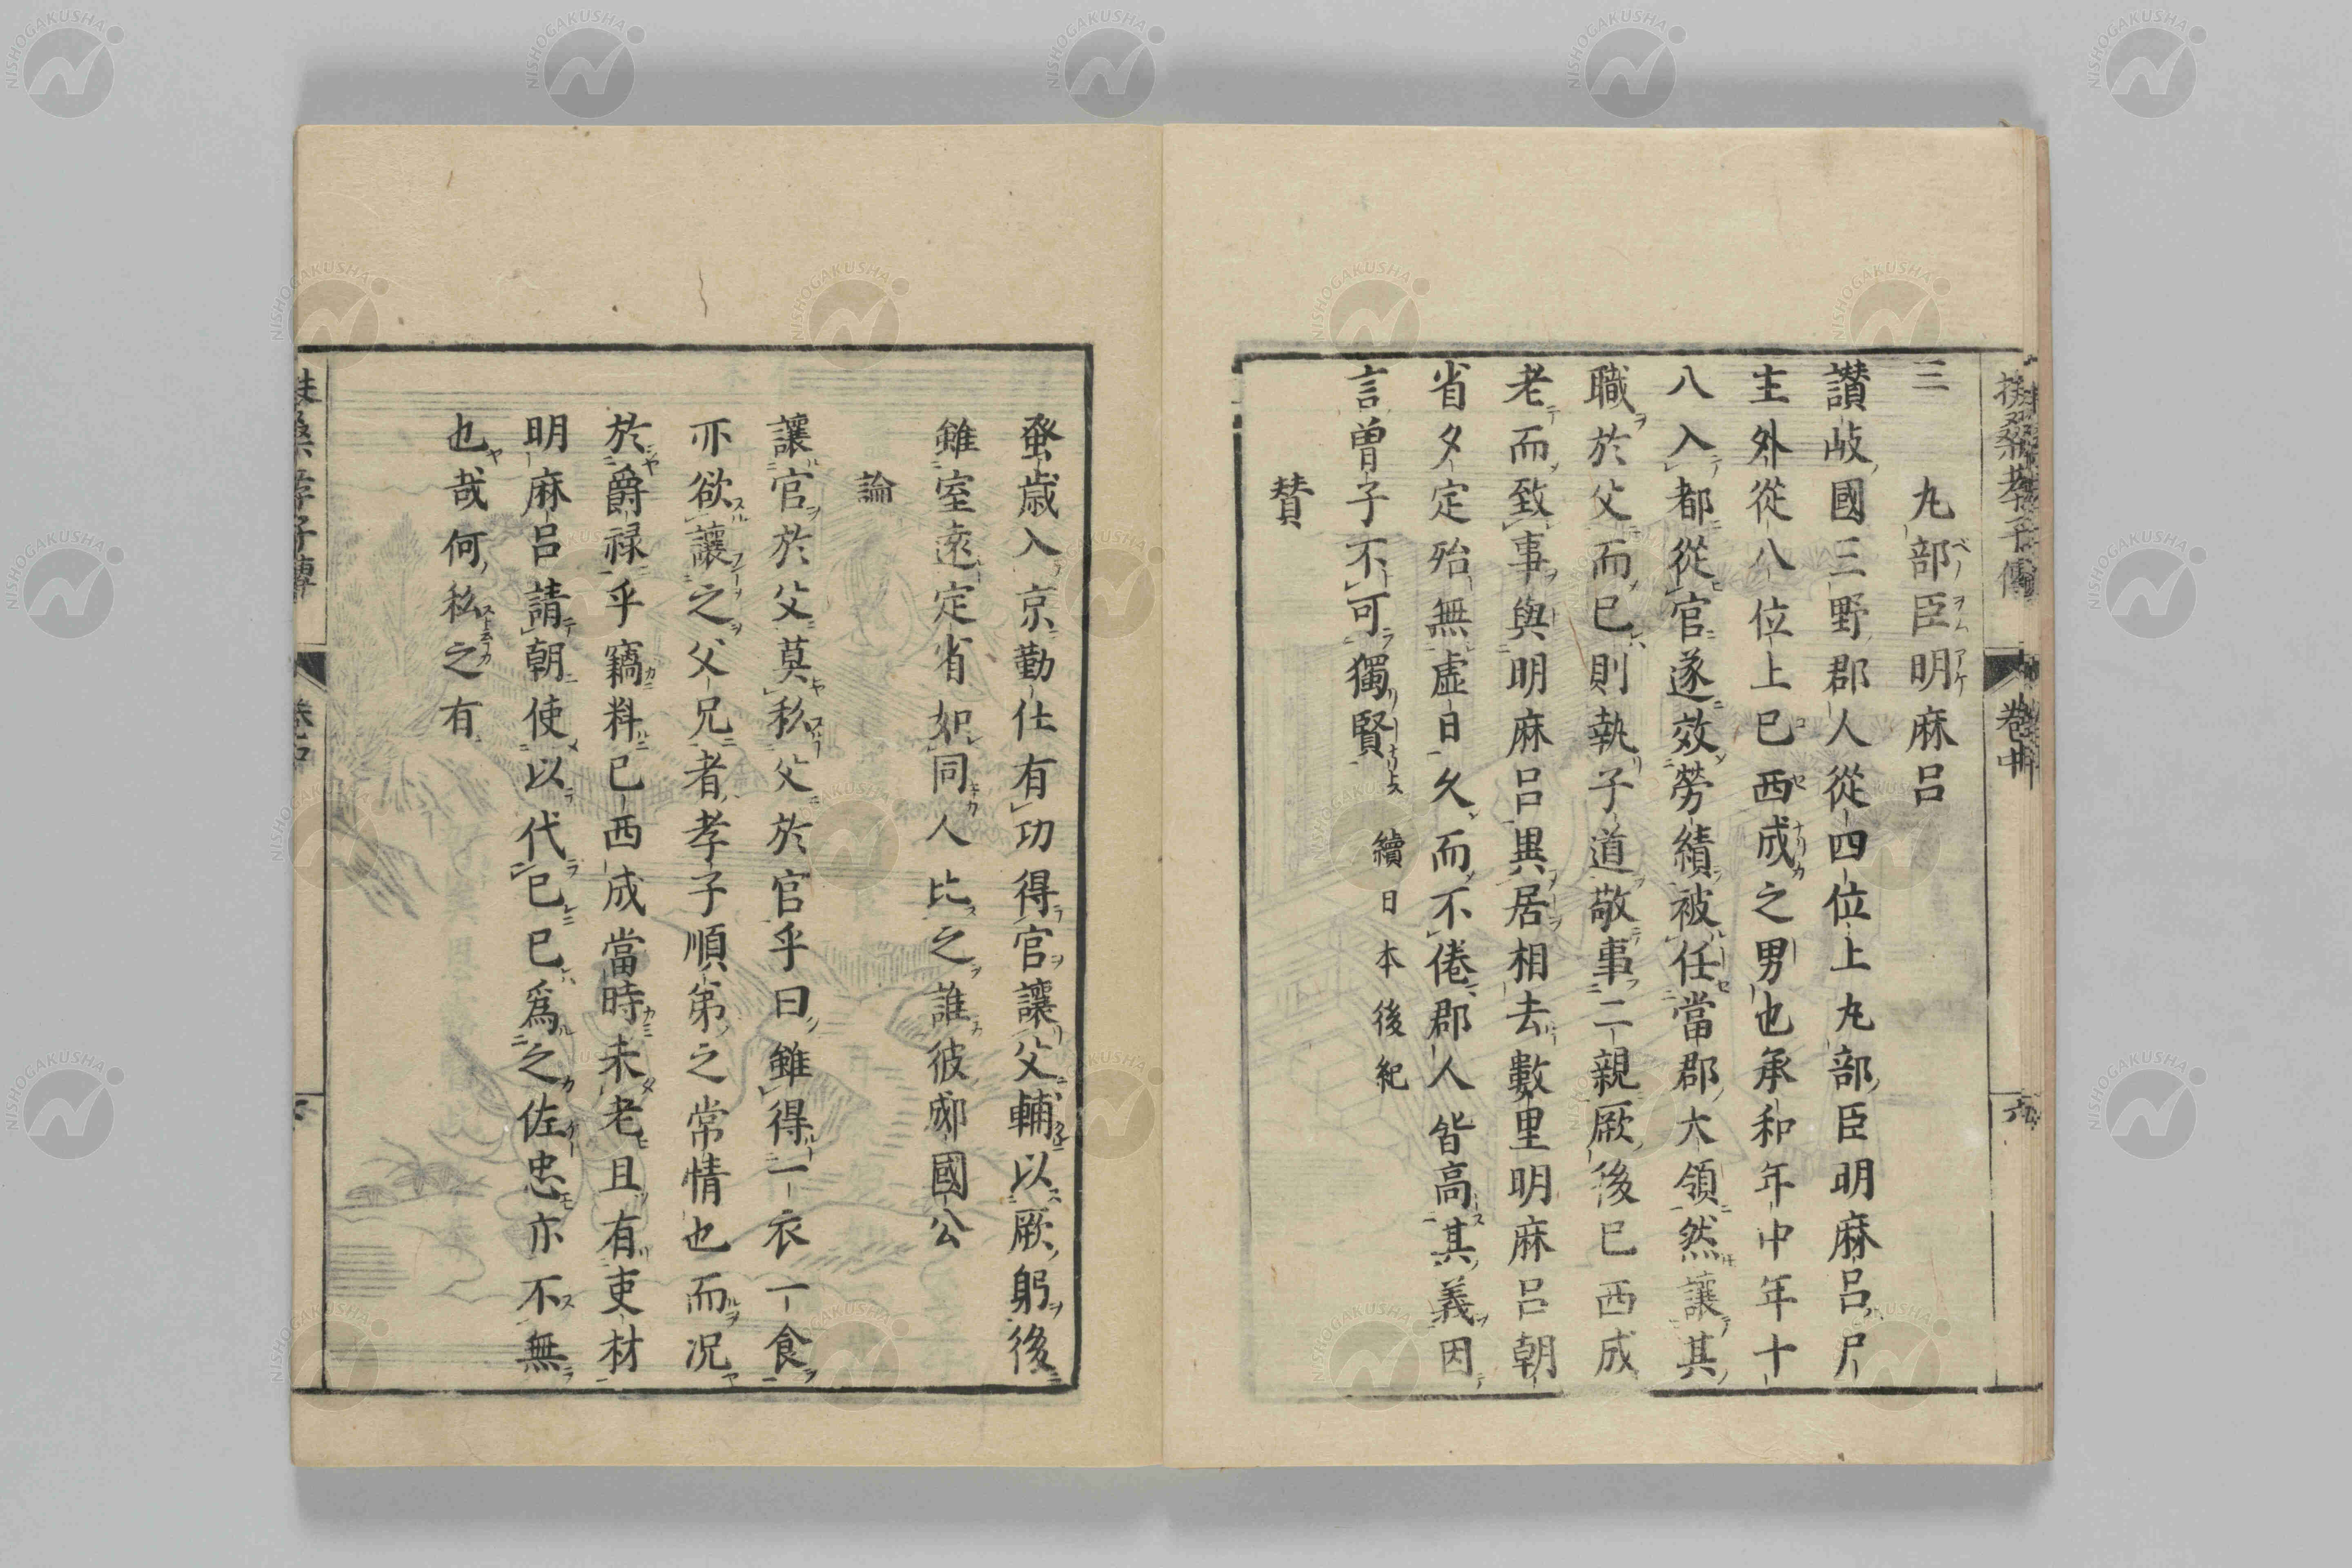 三　丸部臣明麻呂
讃岐國三野郡人從四位上丸部臣明麻呂尸
主外從八位上巳西成之男也承和年中年十
八入都從官遂效勞績被任當郡大領然讓其
職於父而已則執子道敬事二親厥後已西成
老而致事與明麻呂異居相去數里明麻呂朝
省夕定殆無虛日久而不倦郡人皆高其義因
言曽子不可獨賢　續日本後紀
賛
蚤歳入京勤仕有功得官讓父輔以厥躬後
雖室遠定省如同人比之誰彼郕國公
論
讓官於父莫私父於官乎曰雖得一衣一食
亦欲讓之父兄者孝子順弟之常情也而況
於爵禄乎竊料已西成當時未老且有吏材
明麻呂請朝使以代已已爲之佐忠亦不無
也哉何私之有
扶桑孝子傳
卷中
六
NISHOGAKUSHA